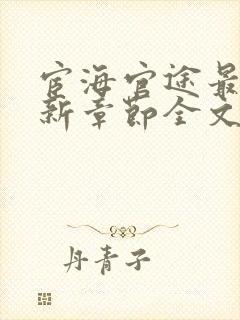 宦海官途最
新章节全文
丹青子